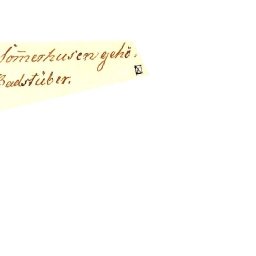 Som̄erhusen gehö-
Badstüber.